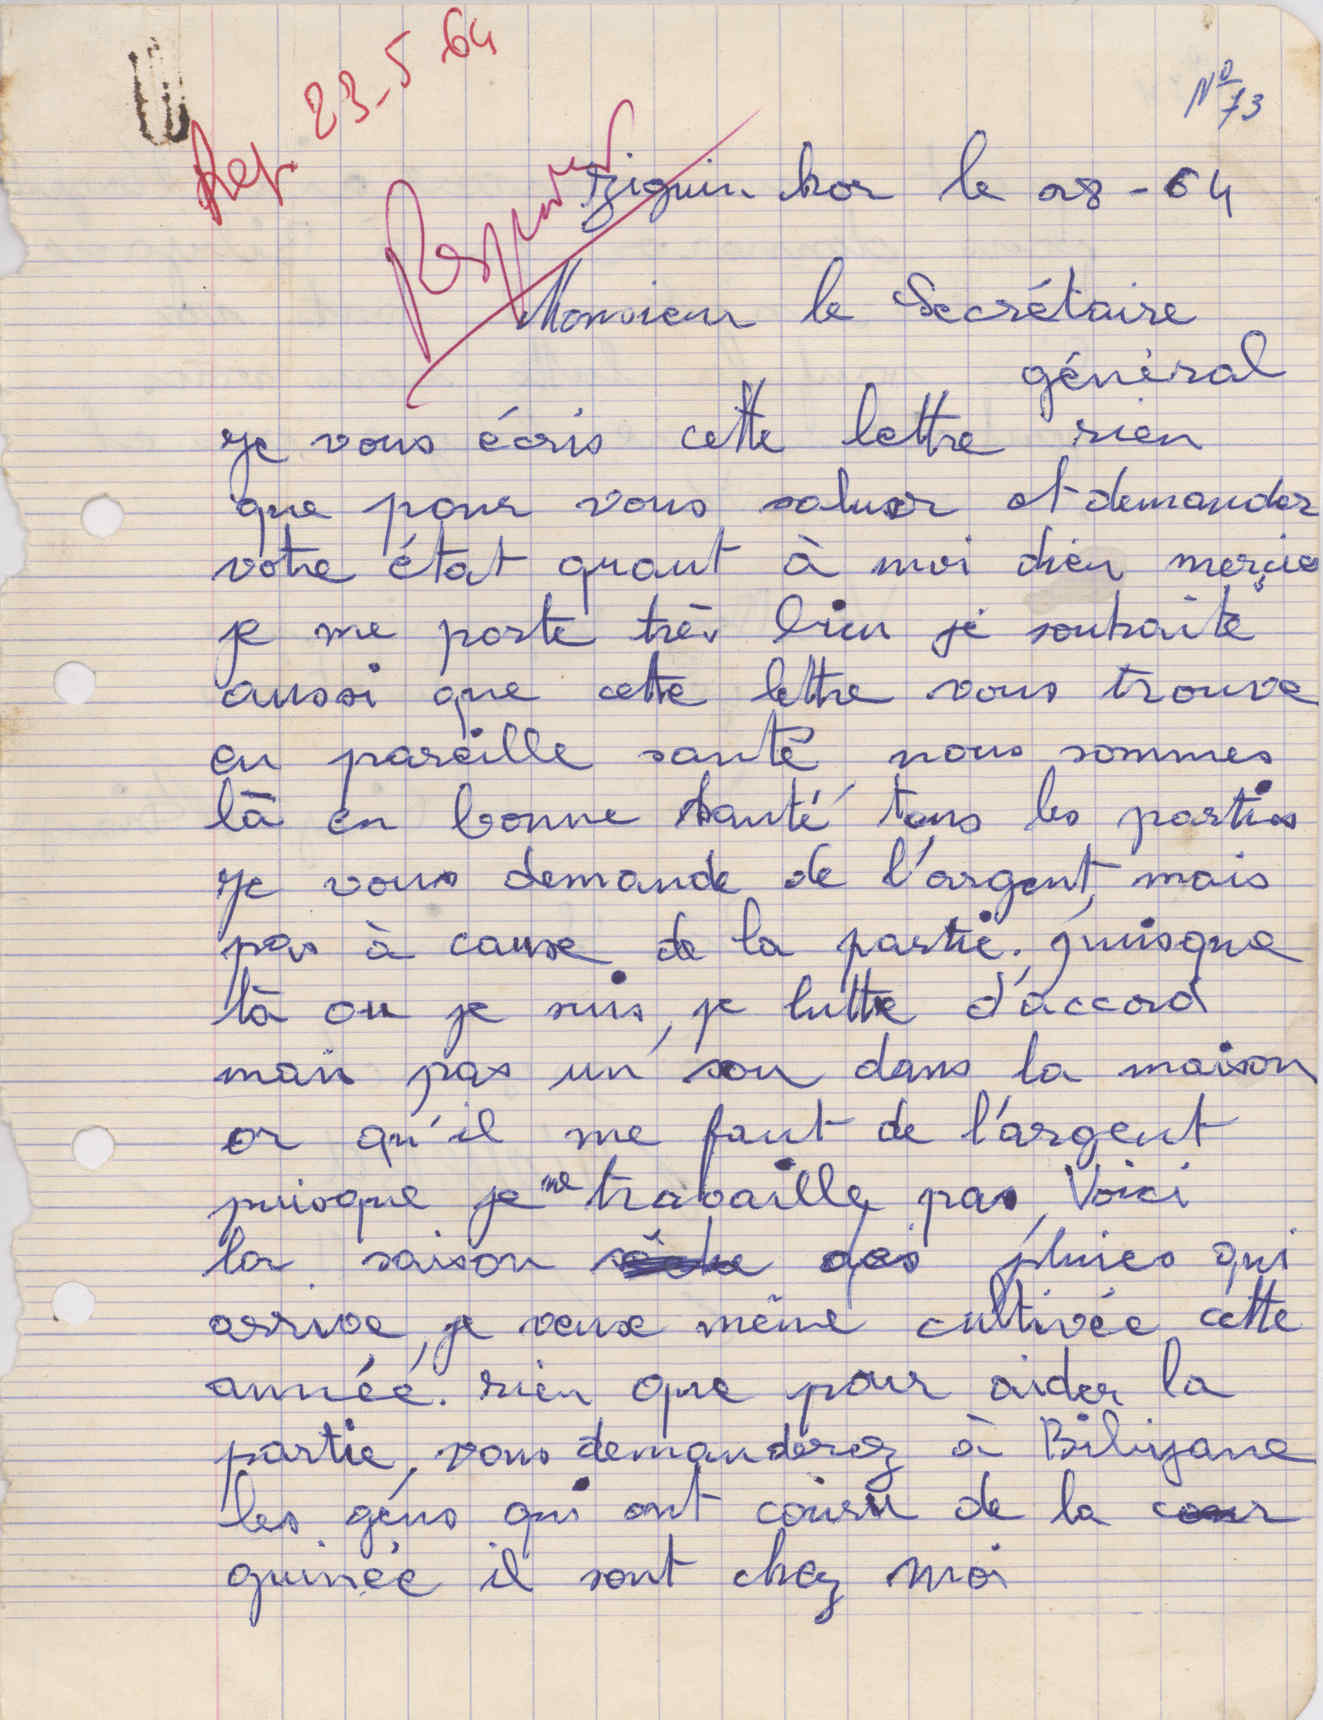 Rep. 23-5-64
Nº 73
Responder
Ziguin hor le 28-64
Monsieur le Secrétaire
général
Je vous écris cette lettre rien
que pour vous saluer et demander
votre état quant à moi dieu mercie
je me porte très bien je souhaite
aussi que cette lettre vous trouve
en pareille santé nous sommes
là en bonne santé tous les parties
Je vous demande de l'argent, mais
pas à cause de la partie. puisque
là ou je suis, je lutte d'accord
mais pas un sou dans la maison
or qu'il me faut de l'argent
puisque je ne travaille pas, Voici
la saison sèche des pluies qui
arrive, je veux même cultivée cette
année. rien que pour aider la
partie, vous demanderez à Biliyane
les géns qui ont couru de la
guinée il sont chez moi